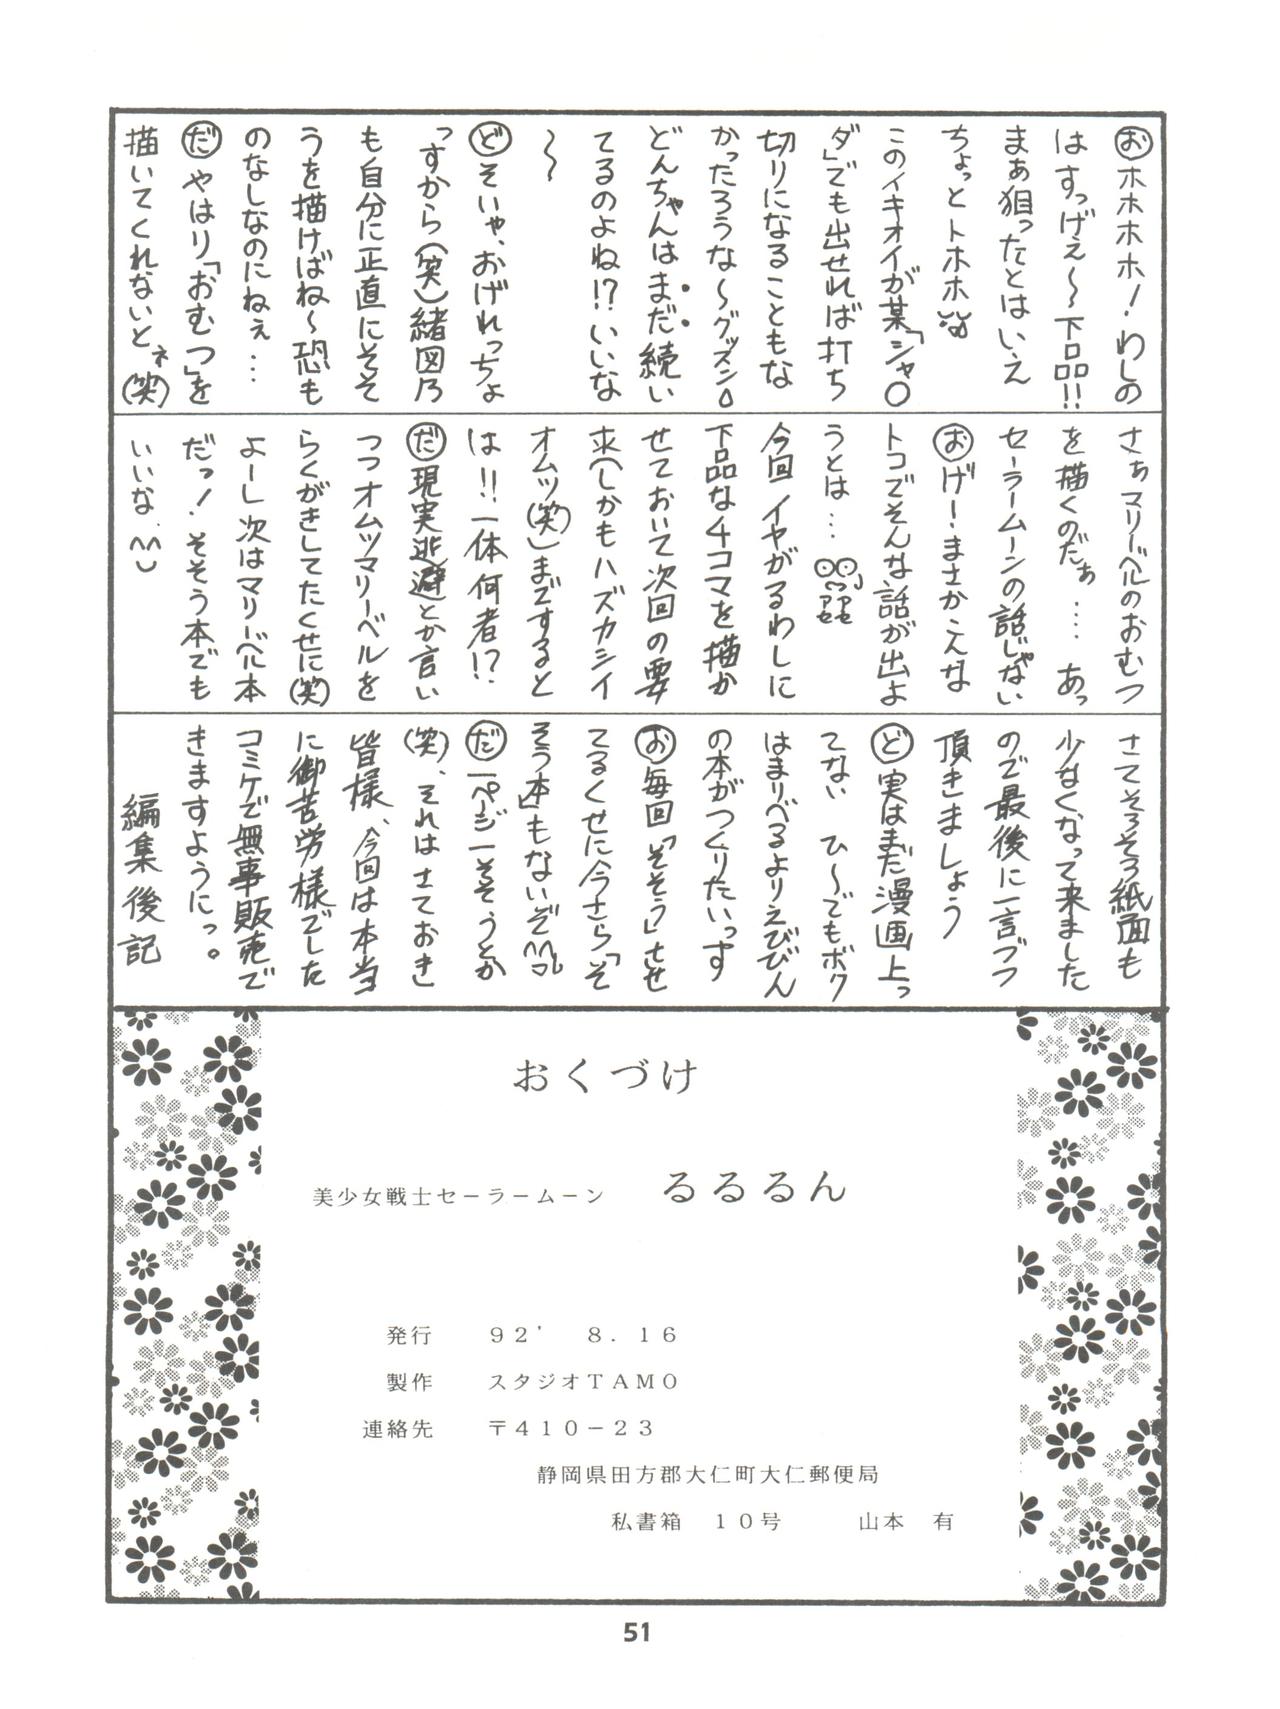 おホホホホ！わしの
はすっげぇ〜下品!!
まぁ狙ったとはいえ
ちょっとトホホ
このイキオイが某「シャ○
ダ」でも出せれば打ち
切りになることもな
かったろうな〜グッスン
どんちゃんはまだ続い
てるのよね!?いいな
〜
どそいや、おげれっちょ
っすから(笑)緒図乃
も自分に正直にそそ
うを描けばね〜恐も
のなしなのにねぇ…
だやはり「おむつ」を
描いてくれないとネ(笑)
さぁマリーベルのおむつ
を描くのだぁ…. あっ
セーラームーンの話じゃない
おげー！まさかこんな
トコでそんな話が出よ
うとは…
今回イヤがるわしに
下品な4コマを描か
せておいて次回の要
求(しかもハズカシイ
オムツ(笑))まですると
は!!一体何者!?
だ現実逃避とか言い
つつオムツマリーベルを
らくがきしてたくせに(笑)
よーし次はマリーベル本
だっ！そそう本でも
いいな.^^
さてそろそろ紙面も
少なくなって来ました
ので最後に一言づつ
頂きましょう
ど実はまだ漫画上っ
てない ひ〜でもボク
はまりべるよりえびびん
の本がつくりたいっす
お毎回「そそう」させ
てるくせに今さら「そ
そう本」もないぞ^^
だ一ページ一そそうとか
(笑)、それはさておき
皆様、今回は本当
に御苦労様でした
コミケで無事販売で
きますようにっ。
編集後記
おくづけ
美少女戦士セーラームーン るるるん
発行 ９２’ ８．１６
製作 スタジオＴＡＭＯ
連絡先 〒４１０－２３
静岡県田方郡大仁町大仁郵便局
私書箱 １０号 山本 有
51